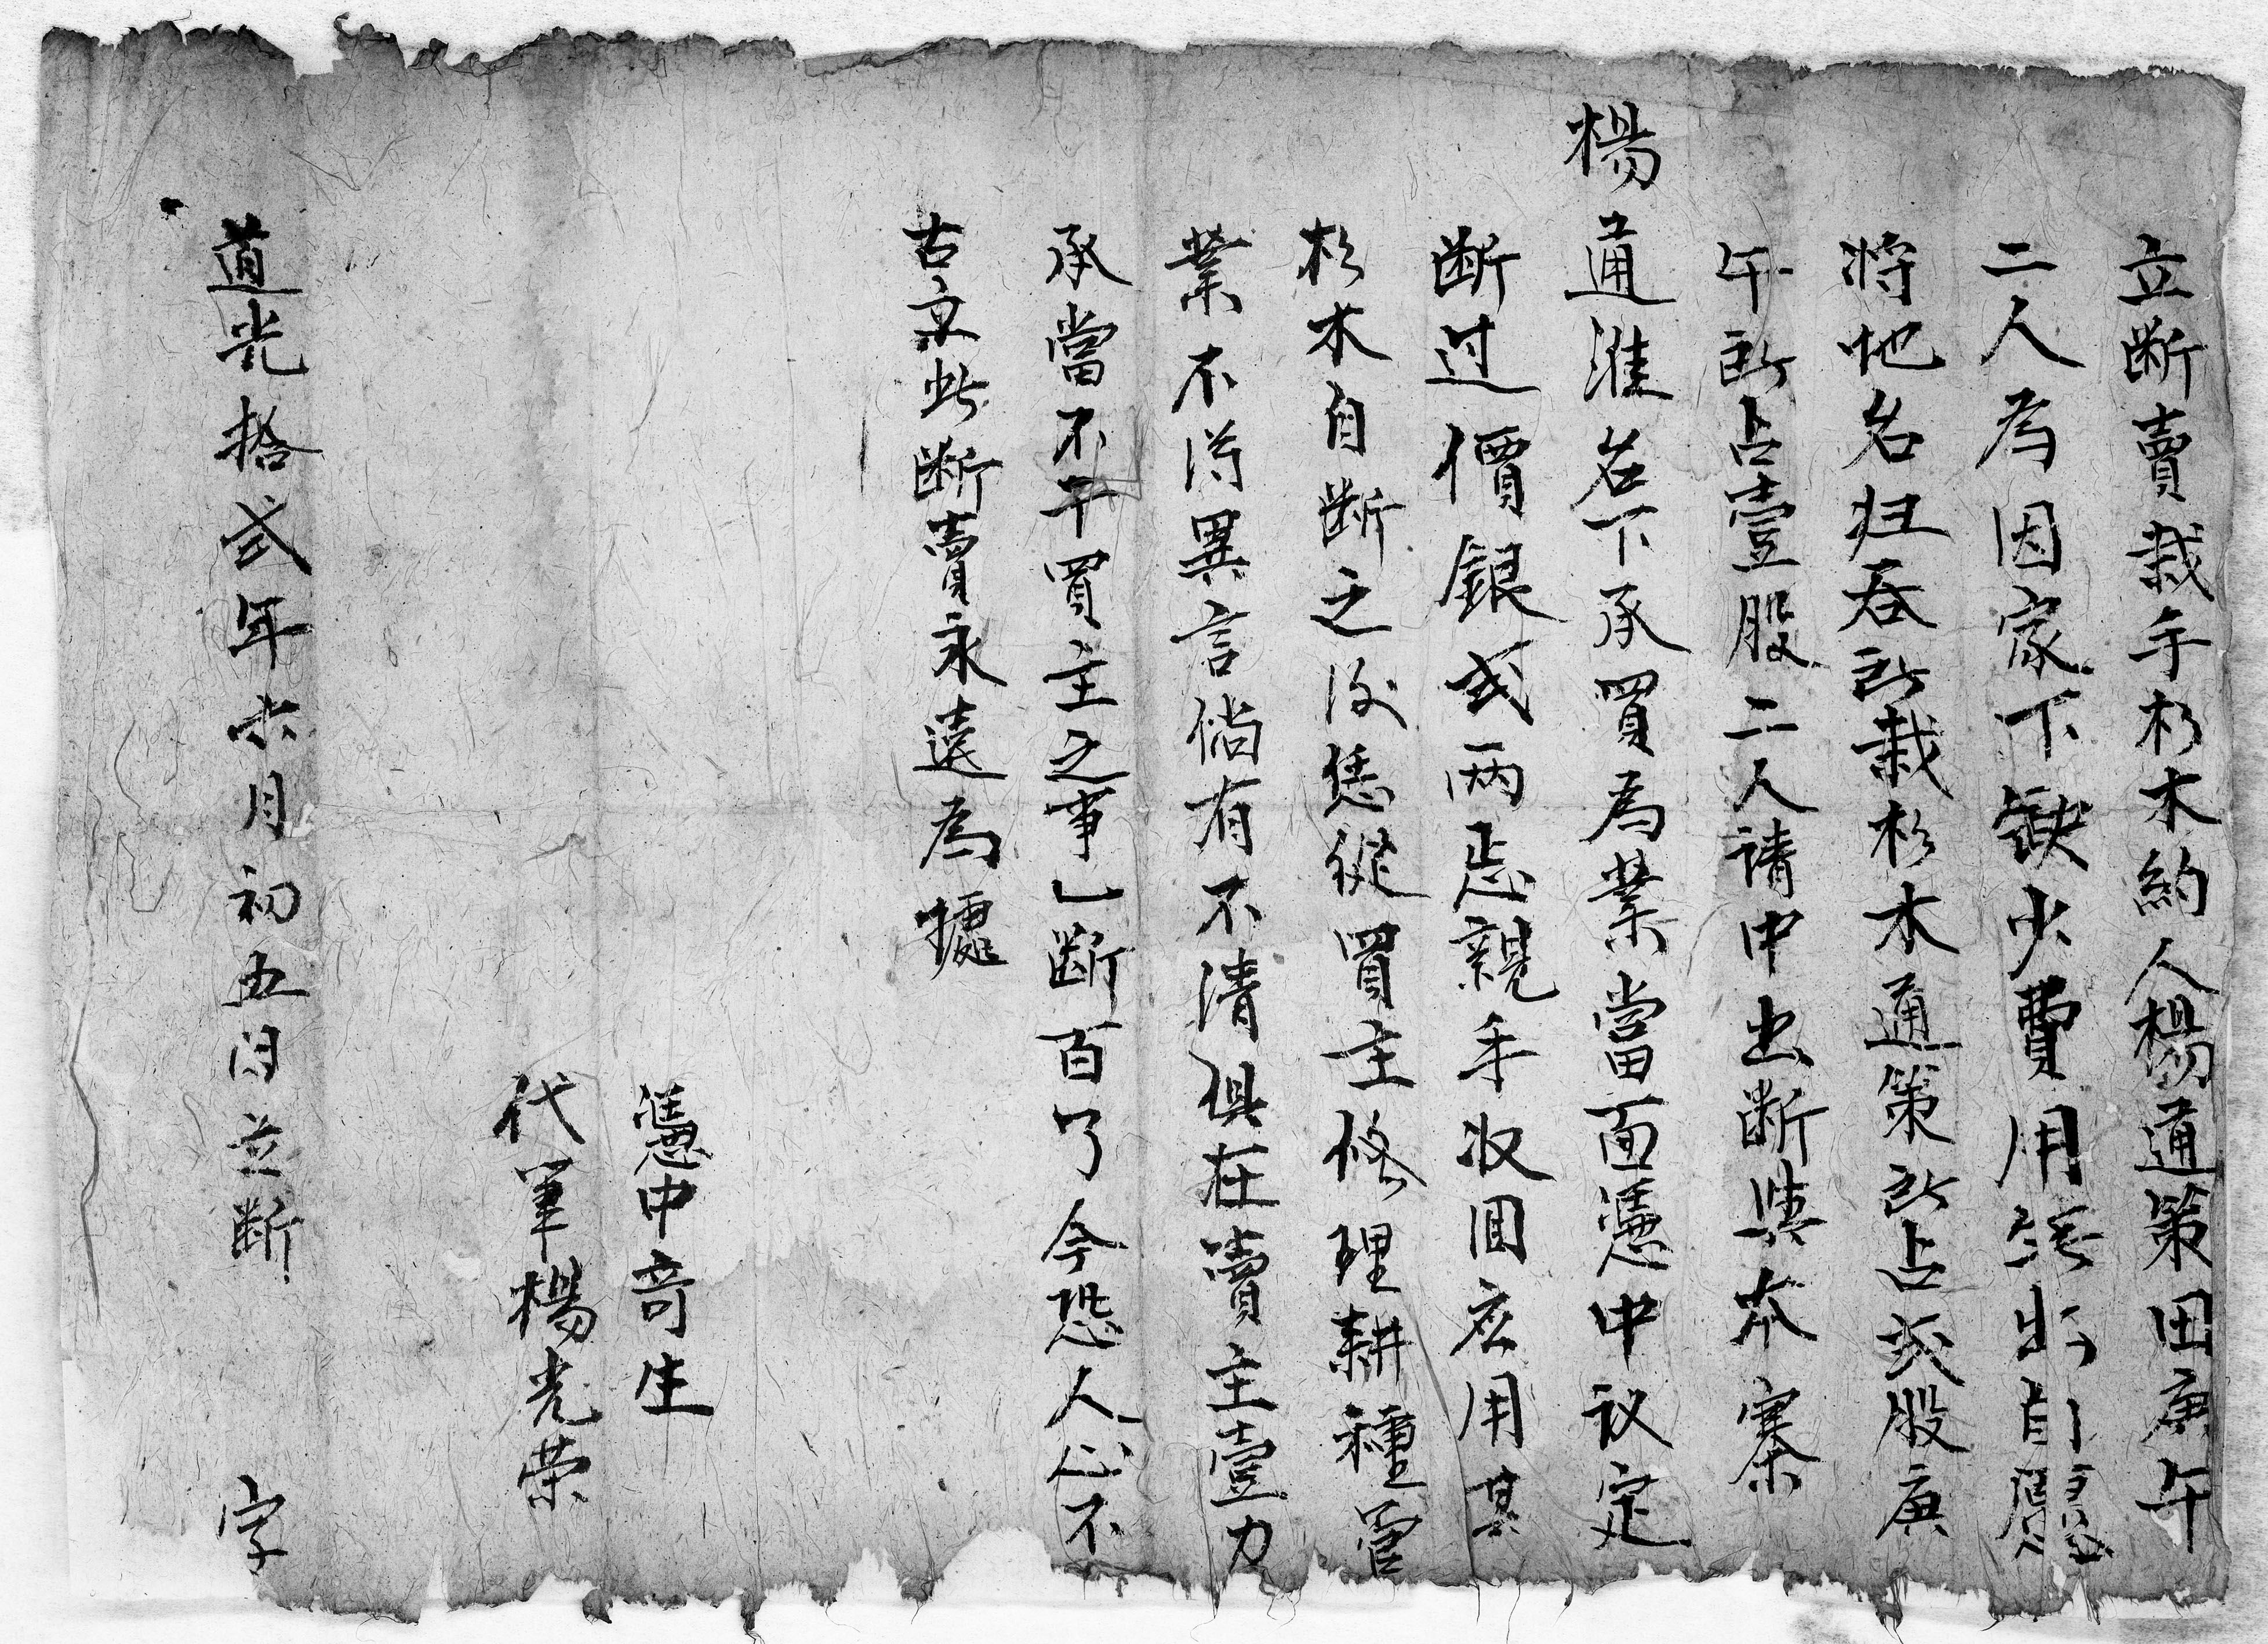 立断賣栽手杉木約人楊通策田庚午
二人為因家下缺少費用無出自愿
将地名归吞所栽杉木通策所占弍股庚
午所占壹股二人請中出断與本寨
楊通淮名下承買為業當面憑中议定
断过價銀弍两忘親手收回应用其
杉木自断之後恁從買主修理耕種管
業不得異言倘有不清俱在賣主壹力
承當不干買主之事乚断百了今恐人心不
古立此断賣永遠為據
憑中奇生
代筆楊光荣
道光拾弍年六月初五日立断 字